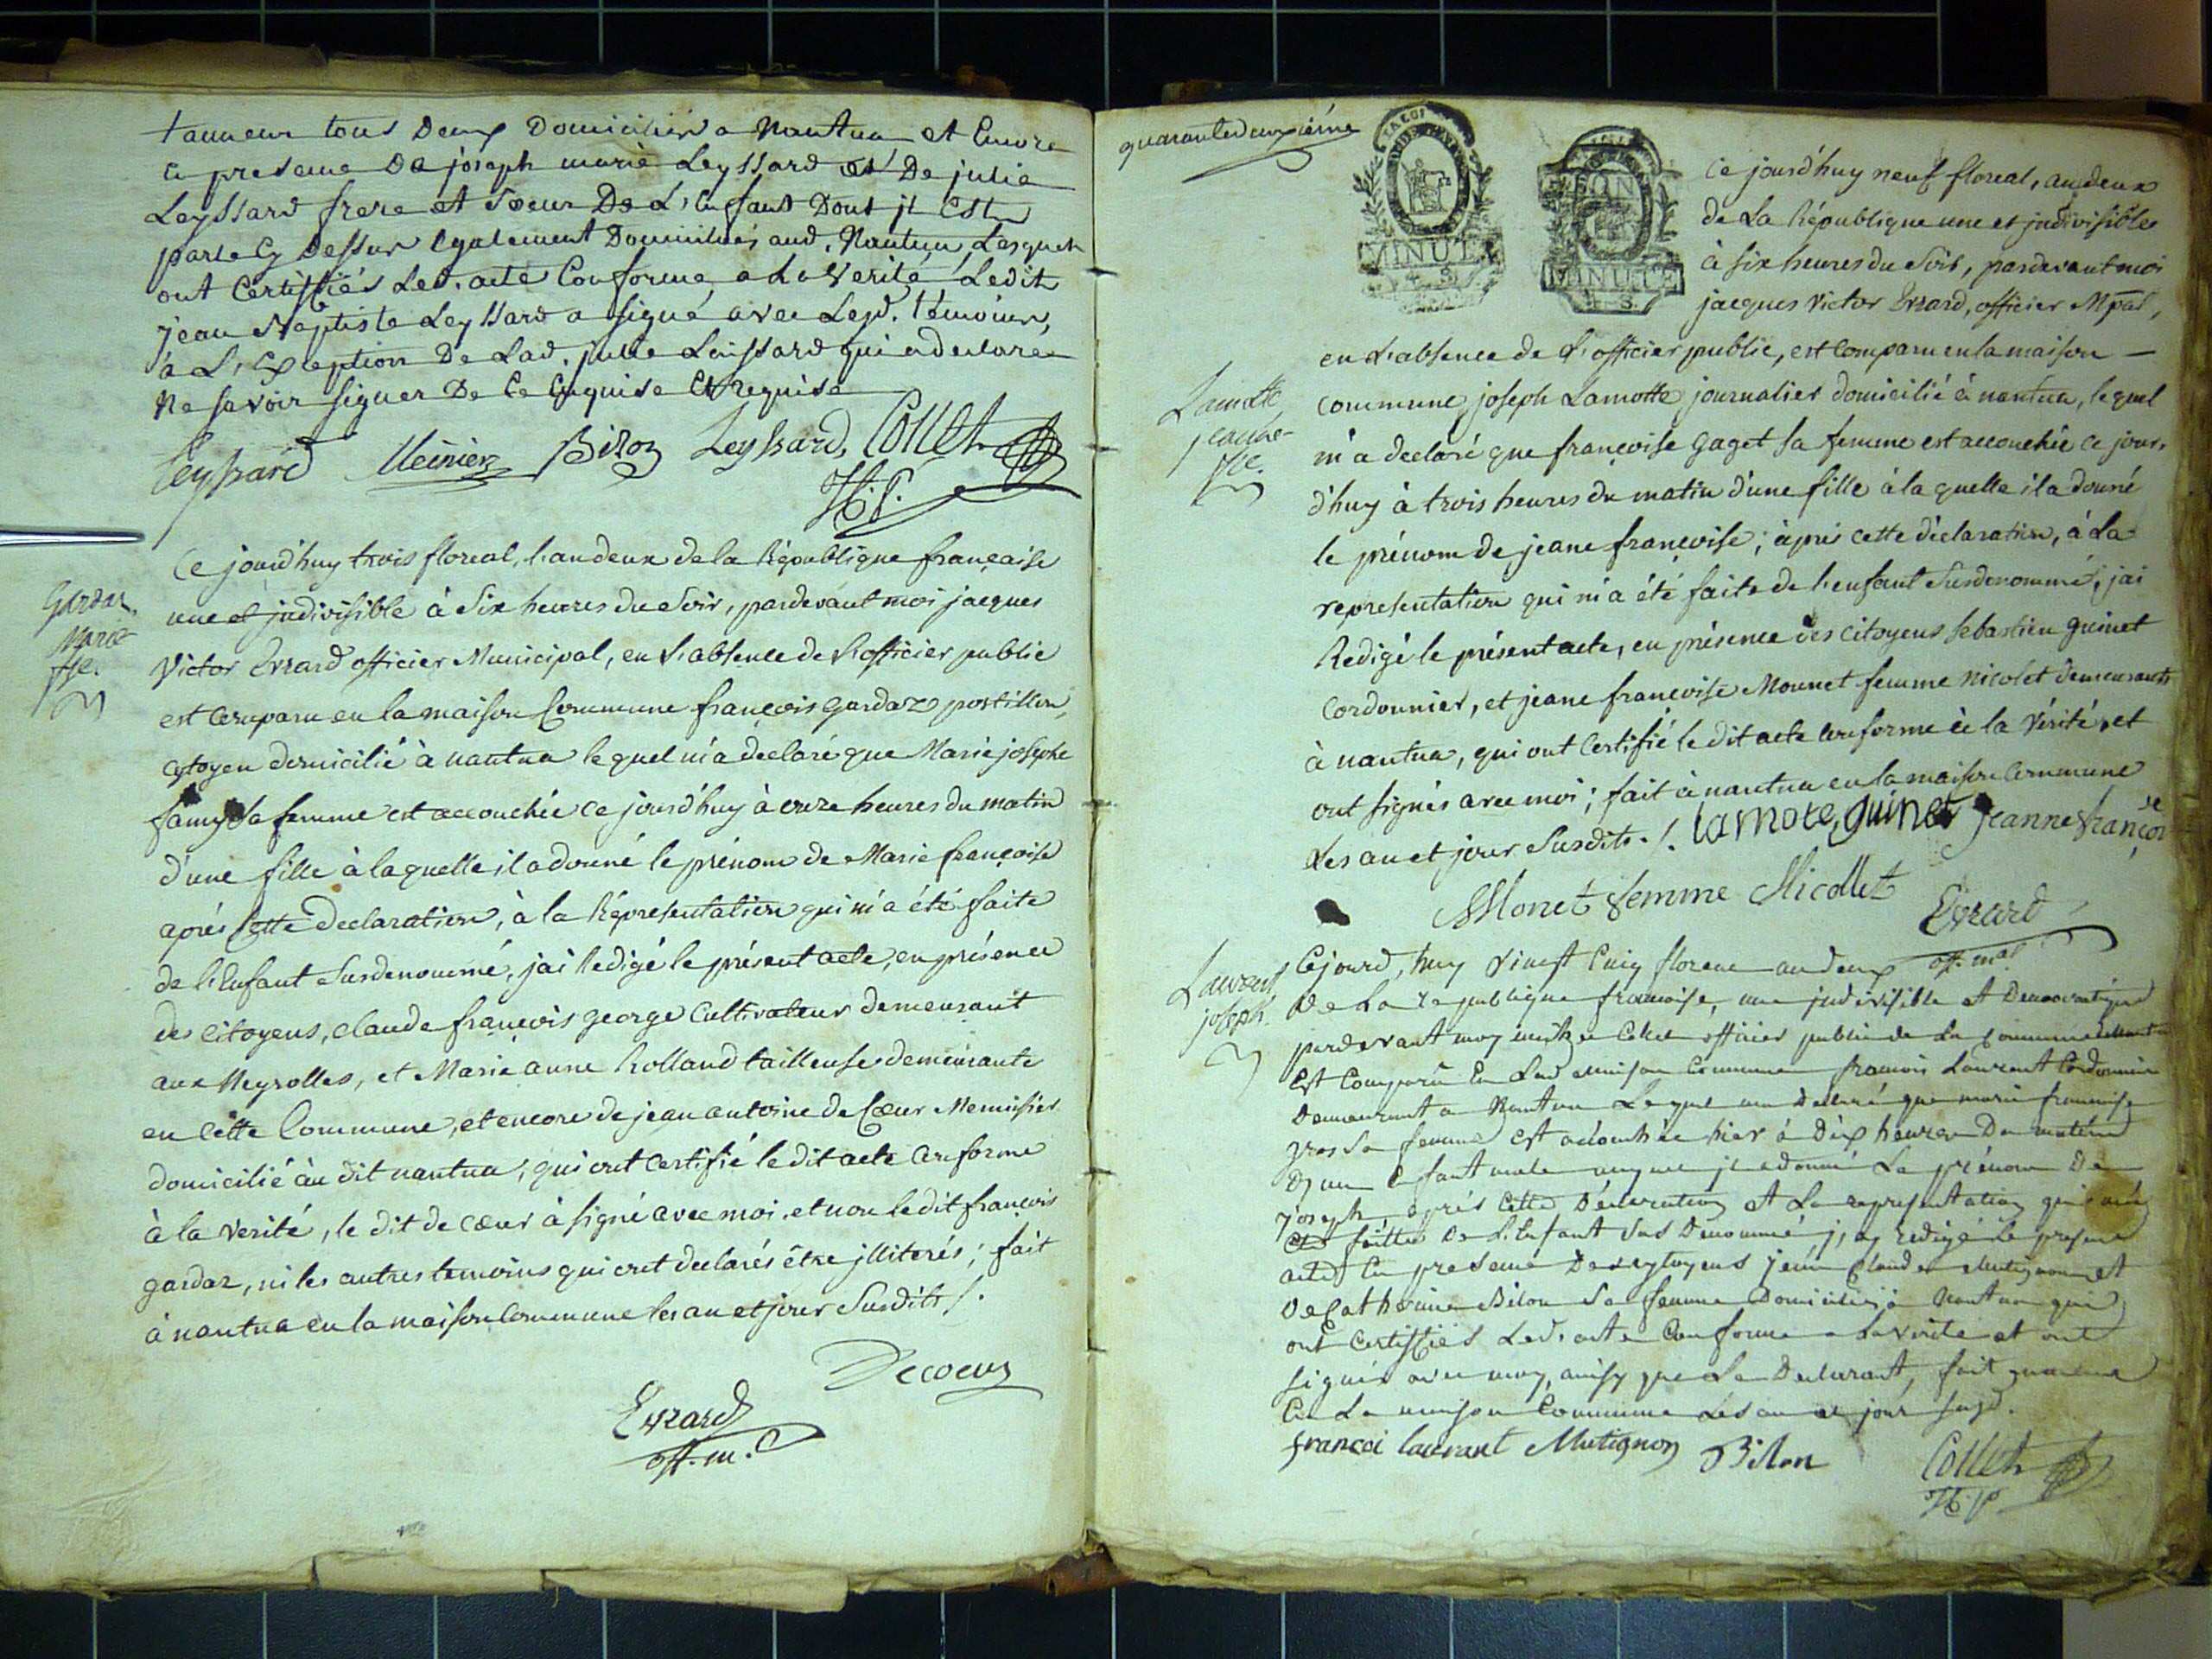 tanneur tous Deux Domiciliés a Nantua et Encore
En presence De joseph marie Leyssard et De julie
Leyssard frere et Soeur De L'Enfant Dont jl Est
parlé Cy Dessur Egalement Domiciliés aud. Nantua, Lesquels
ont Certiffiés Led. acte Conforme a La Verité, Ledit
jean Baptiste Leyssard a signé avec Lesd. témoins,
à L'Exception De Lad. julie Laissard qui a declaré
Ne savoir signer De Ce Enquise Et requise
Leyssard Meinier Bilon Leyssard, Collet
H.P.
Gardaz,
Marie
fse.
Ce jourd'huy trois floreal, l'an deux de la République française
une et jndivisible à Six heures du Soir, pardevant moi jacques
Victor Evrard officier Municipal, en L'absence de L'officier public
est comparu en la maison Commune françois gardaz postillon,
cytoyen domicilié à nantua lequel m'a declaré que Marie josephe
famy Sa femme est accouchée ce jourd'huy à onze heures du matin
d'une fille à laquelle il a donné le prénom de Marie françoise
aprés Cette Declaration, à la Représentation qui m'a été faite
de l'Enfant Susdenommé, jai Redigé le présent acte, en présence
des Citoyens, claude françois george Cultivateur demeurant
aux Neyrolles, et Marie anne Rolland tailleuse demeurante
en Cette Commune, et encore de jean antoine de Cœur Menuisier
domicilié au dit nantua, qui ont certifié le dit acte conforme
à la verité, le dit de cœur à signé avec moi. et non le dit françois
gardaz, ni les autres temoins qui ont declarés être jlliterés; fait
à nantua en la maison Commune les an et jour Susdits /.
Decoeur
Evrard
off. m.
quarantedeuxiéme
LA LOI
MINUTE
4. S.
MINUTE
4. S.
Ce jourd'huy neuf floreal, an deux
de La République une et jndivisible
à six heures du Soir, pardevant moi
jacques Victor Evrard, officier Mpal,
en L'absence de L'officier public, est comparu en la maison —
Lamotte
jeanne
fse.
commune, joseph Lamotte journalier domicilié à nantua, lequel
m'a declaré que françoise gaget sa femme est accouchée ce jour,
d'huy à trois heures du matin d'une fille à laquelle il a donné
le prénom de jeane françoise; après cette déclaration, à La
representation qui m'a été faite de l'enfant Susdenommé, jai
Redigé le présent acte, en présence des Citoyens Sebastien guinet
Cordonnier, et jeane françoise Mounet femme Nicolet demeurants
à nantua, qui ont Certifié le dit acte conforme à la Vérité, et
ont signés avec moi; fait à nantua en la maison Commune
Les an et jour Susdits./. lamote, guinet Jeanne françoise
Monet femme Nicollet Evrard
off. mal
Laurent
joseph.
Cejourd'huy Vingt Cinq floreal an deux
De La republique francoise, une jndivisible et Democratique
pardevant moy Collet officier public de La Commune de Nantua
Est Comparû En Lad. maison Commune francois Laurent Cordonnier
Demeurant a Nantua Lequel ma Declaré que marie francoise
gros Sa femme est acouchée hier à Dix heures Du matin
D'un Enfant male auquel jl a donné Le prénom De
joseph aprés Cette Déclaration et La representation qui m'a
été faitte De L'Enfant Sus Denommé j'ay redigé Le present
acte En presence Des cytoyens jean Claude Mutignon et
De Catherine Bilon Sa femme Domiciliés à Nantua qui
ont Certiffiés Led. acte Conforme a La verité et ont
signés avec moy, ainsy que Le Declarant, fait
En La maison Commune Les an et jour susd.
françoi laurant Mutignon Bilon Collet
H.P.